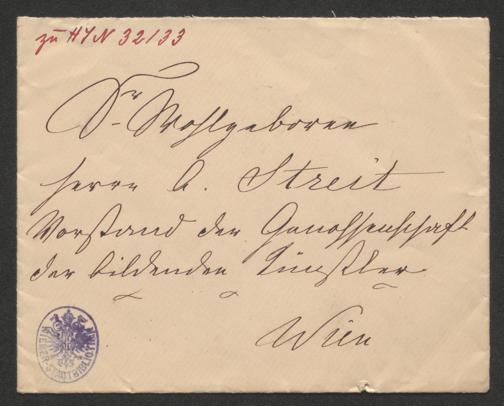 zu HIN 32133
Sr Wohlgeboren
Herrn A. Streit
Vorstand der Genossenschaft
der bildenden Künstler
Wien
WIENER STADTBIBLIOTHEK